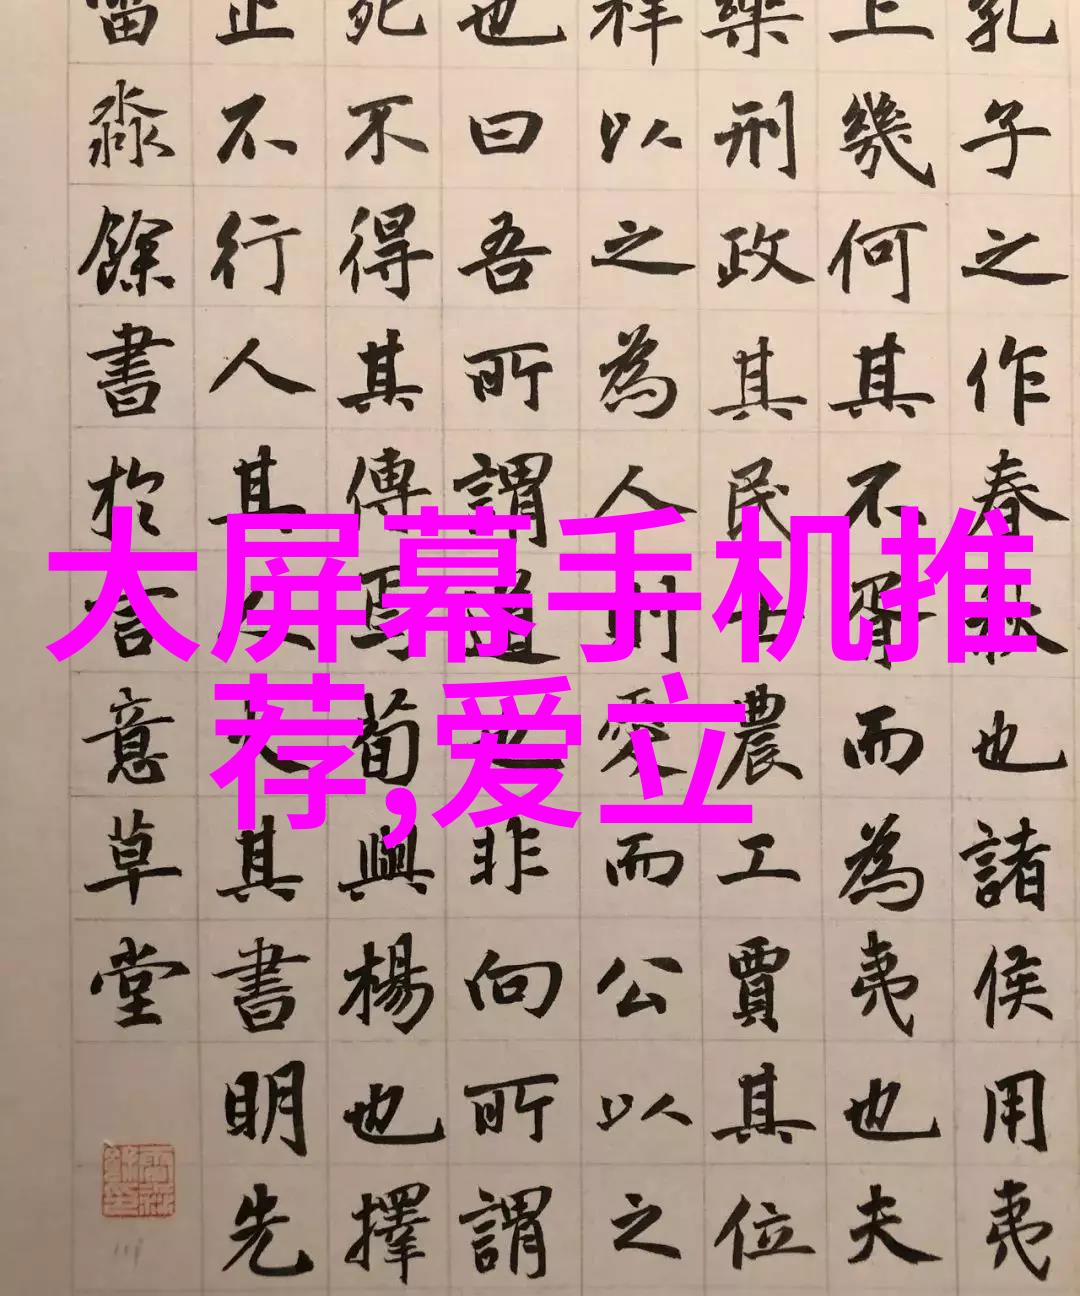 大屏幕手机推
荐,爱立
孔子之作春秋也諸侯用夷
上幾何其不胥而為夷也夫
樂刑政其民士農工賈其位
祥以之為人則愛而公以之
也曰吾所謂道也非向所謂
死不得其傳焉荀與楊也擇
止不行人其人火其書明先
雷淼餘書於言意草堂